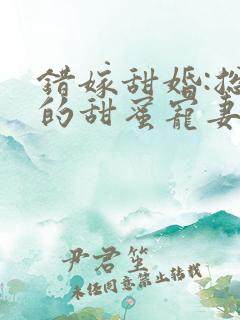 错嫁甜婚:总
的甜蜜宠妻
尹君笙
未经同意禁止转载